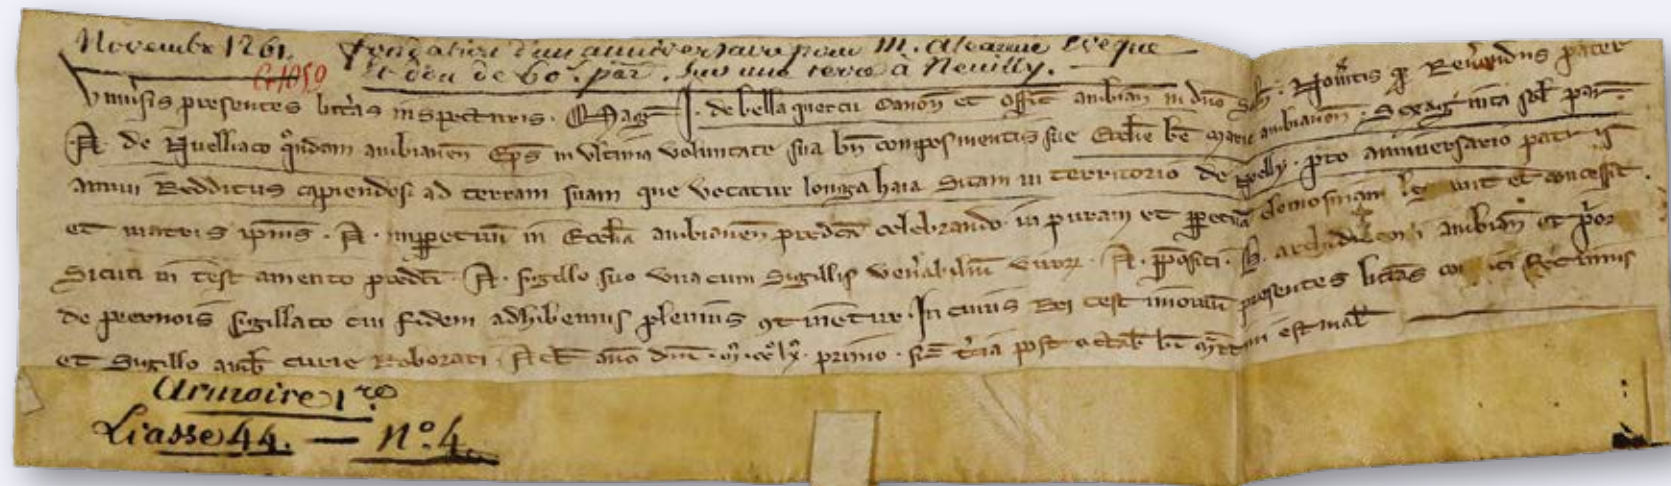 Novembre 1261. fondation d'un anniversaire pour M. Aleaume Eveque
et don de 60 s. par. sur une terre à Neuilly.
G 1059
Univsis presentes litas inspecturis. Magr J. de bella quercu Canon et Offic ambian in dno Salt. Noveritis qd Reverendus pater
A. de Nuelliaco qndam ambianen Eps in ultima voluntate sua bn compos mentis sue Ecclie be Marie ambianen. Sexaginta sol par.
annui Redditus capiendos ad terram suam que vocatur longa haia Sitam in territorio de noelly. pro anniversario patris
et matris ipius. A. imppetuu in Ecclia ambianen predca celebrando in puram et ppetua elemosinam legavit et concessit.
Sicuti in testamento predci. A. sigillo suo una cum Sigillis venabiliu viror. A. ppositi. archidiaconi ambian et
de pecornois sigillato cui fidem adhibemus plenius gtinetur. In cuius Rei testimoniu presentes litas confici fecimus
et Sigillo amb curie Roborari. Act ano dni. m. cc. lx. primo. tcia post octab bi mrtini estival
Armoire 1re
Liasse 44. — No. 4.